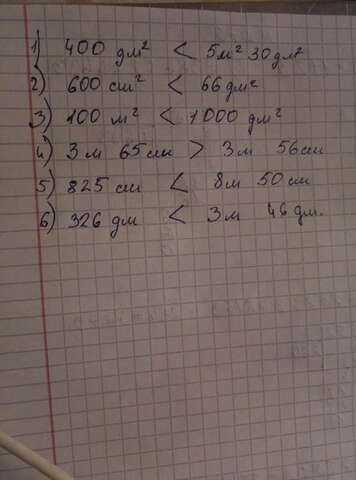 1) 400 дм² < 5м² 30дм²
2) 600 см² < 66 дм²
3) 100 м² < 1000 дм²
4) 3 м 65 см > 3 м 56 см
5) 825 см < 8м 50 см
6) 326 дм < 3 м 46 дм.